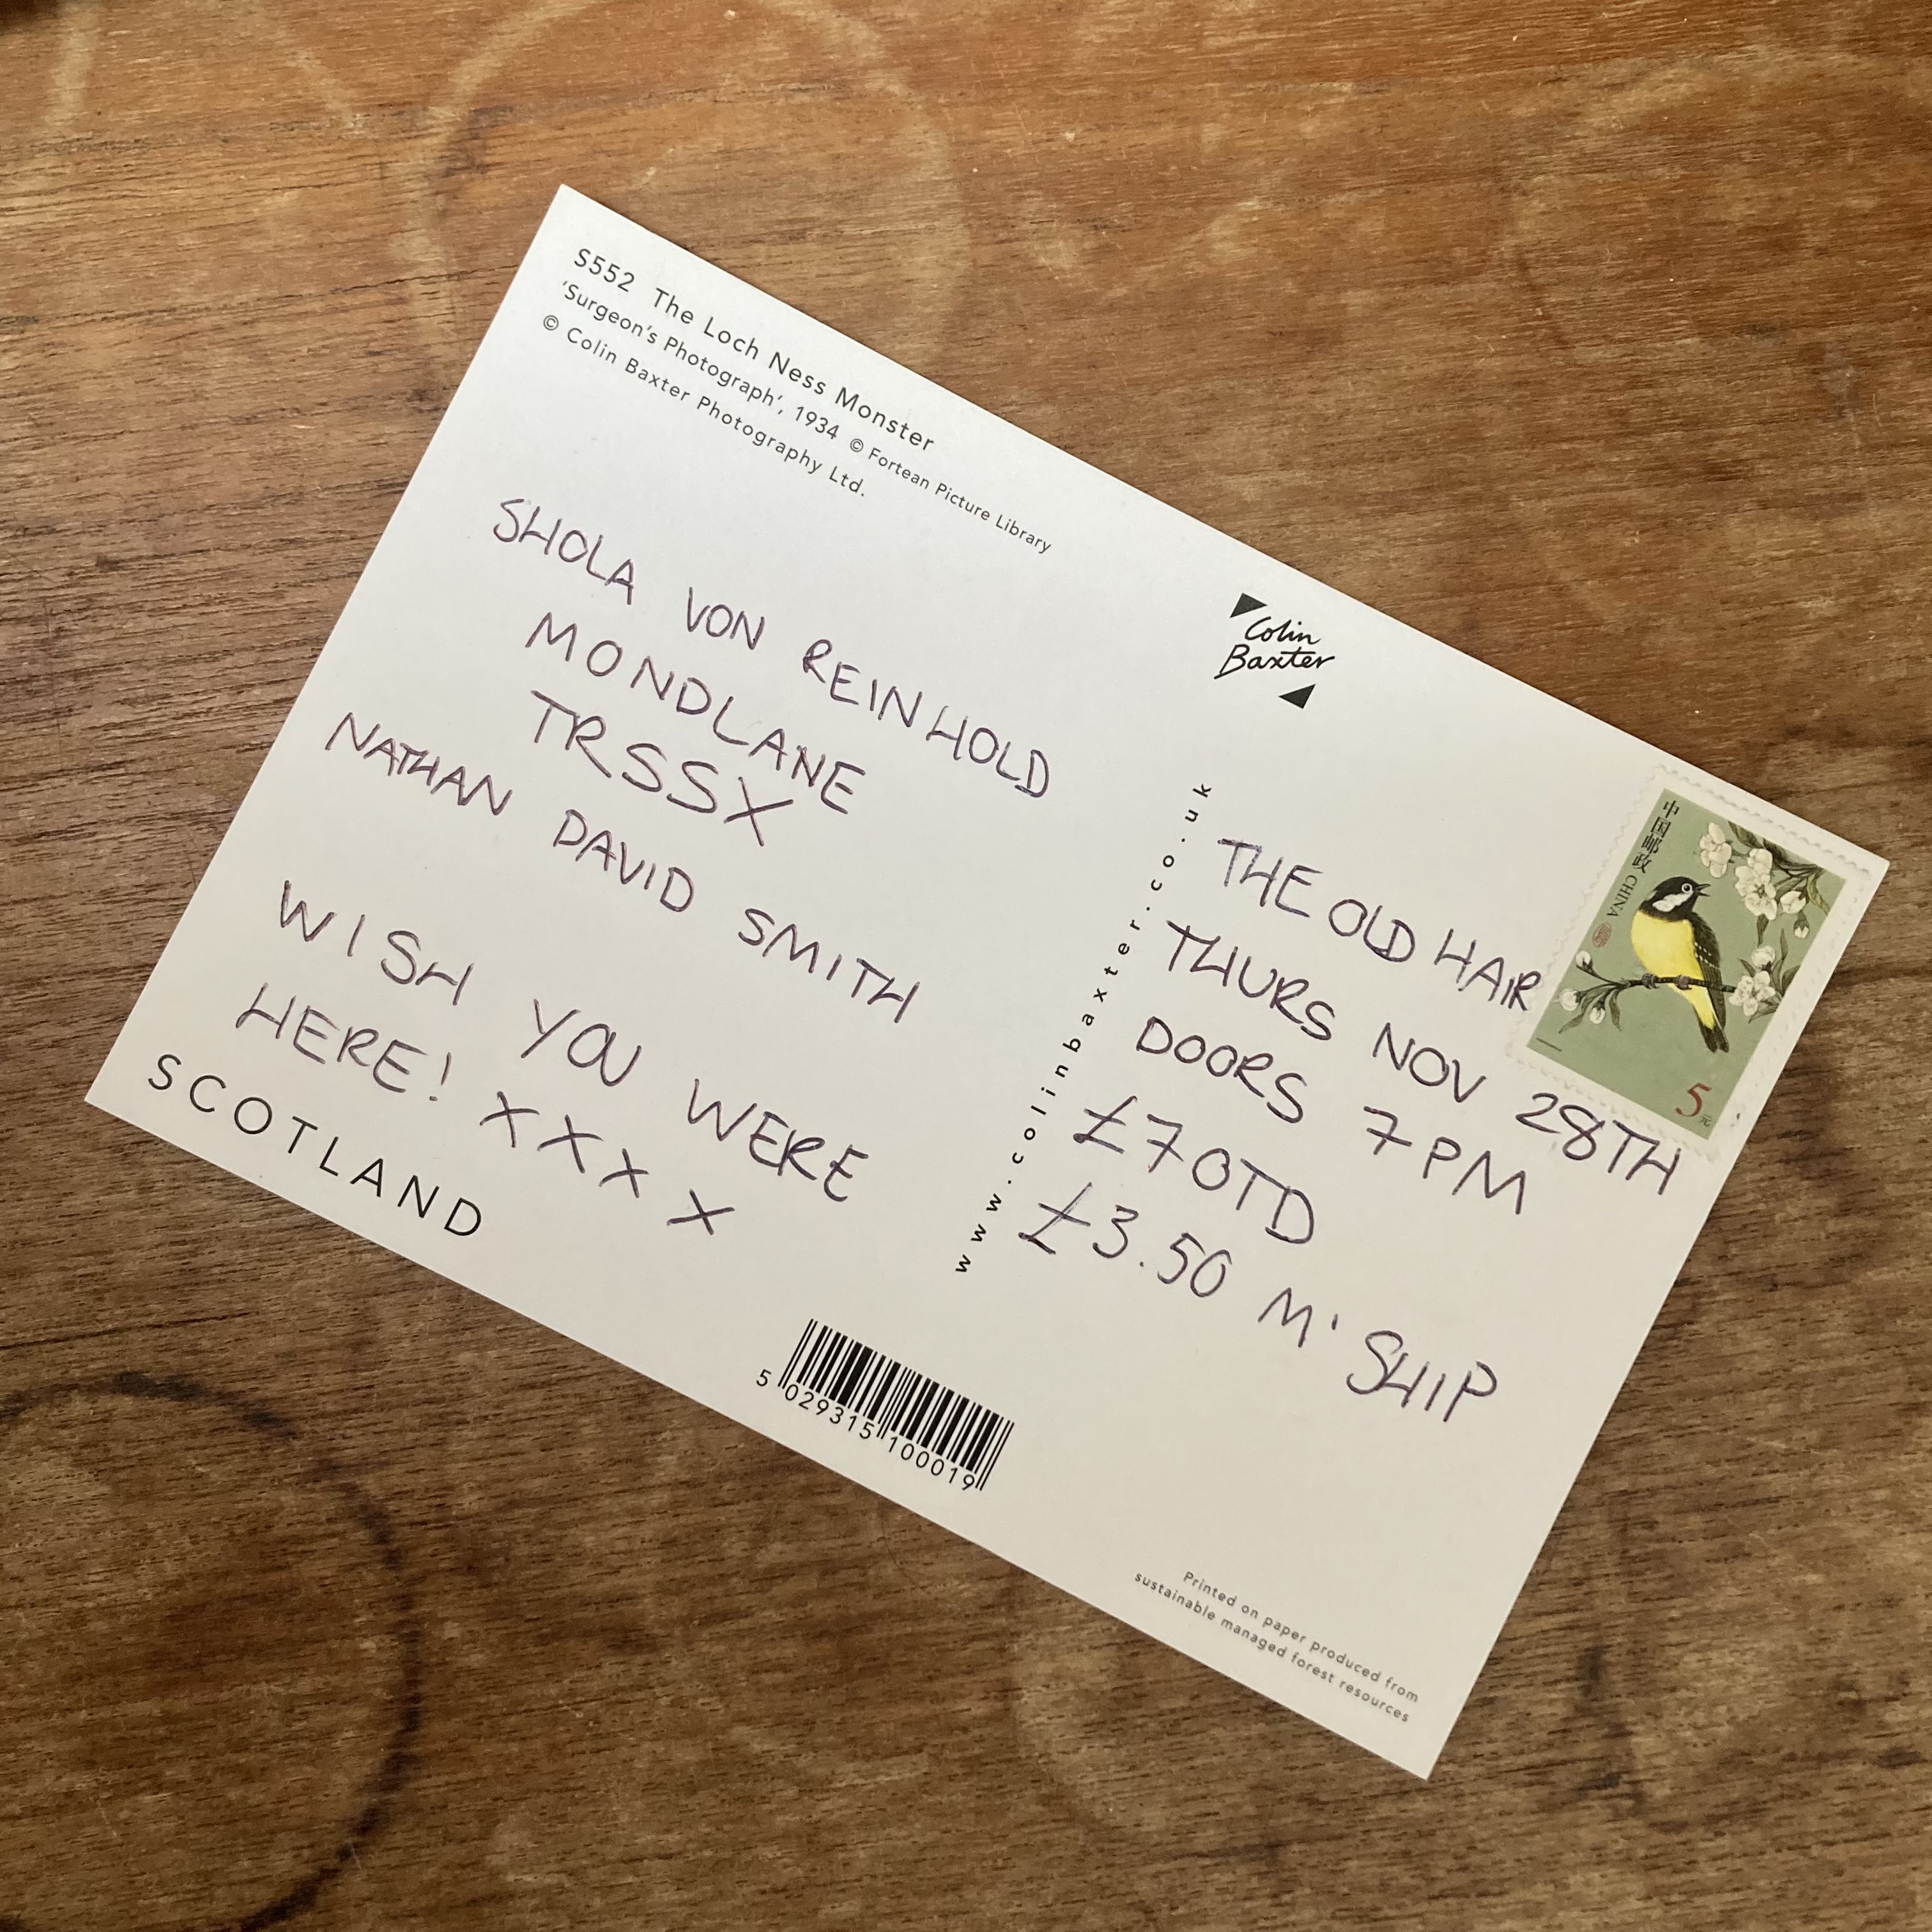 S552 The Loch Ness Monster
'Surgeon's Photograph', 1934 © Fortean Picture Library
© Colin Baxter Photography Ltd.
SHOLA VON REINHOLD
MONDLANE
TRSSX
NATHAN DAVID SMITH
WISH YOU WERE
HERE! X X X X
SCOTLAND
Colin
Baxter
www.colinbaxter.co.uk
中国邮政 CHINA
5元
THE OLD HAIR
THURS NOV 28TH
DOORS 7PM
£7 OTD
£3.50 M'SHIP
5 029315 100019
Printed on paper produced from
sustainable managed forest resources